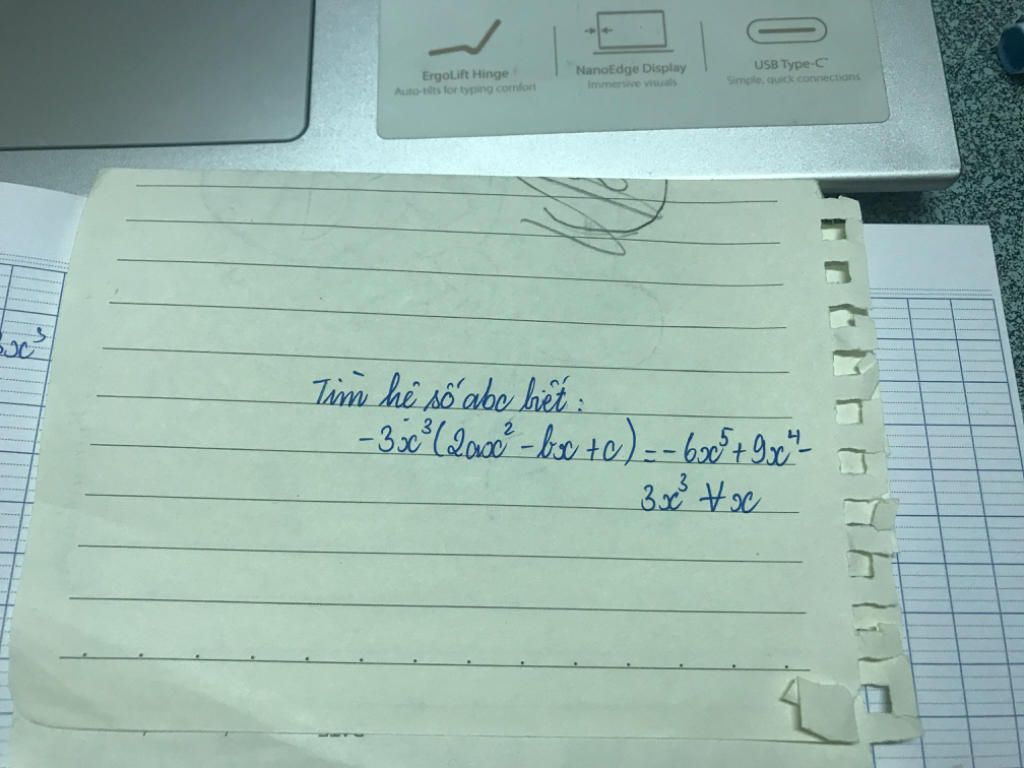 ErgoLift Hinge
Auto-tilts for typing comfort
NanoEdge Display
Immersive visuals
USB Type-C™
Simple, quick connections
x³
Tìm hê số abc biết:
-3x³(2ax² - bx + c) = - 6x⁵ + 9x⁴ -
3x³ ∀ x